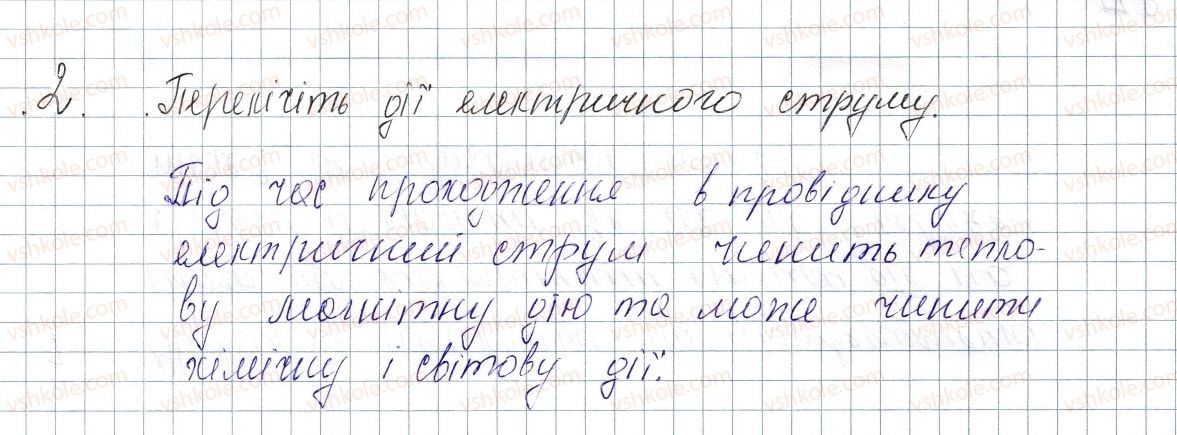 2. Перелічіть дії електричного струму.
Під час проходження в провіднику
електричний струм чинить тепло-
ву магнітну дію та може чинити
хімічну і світову дії.